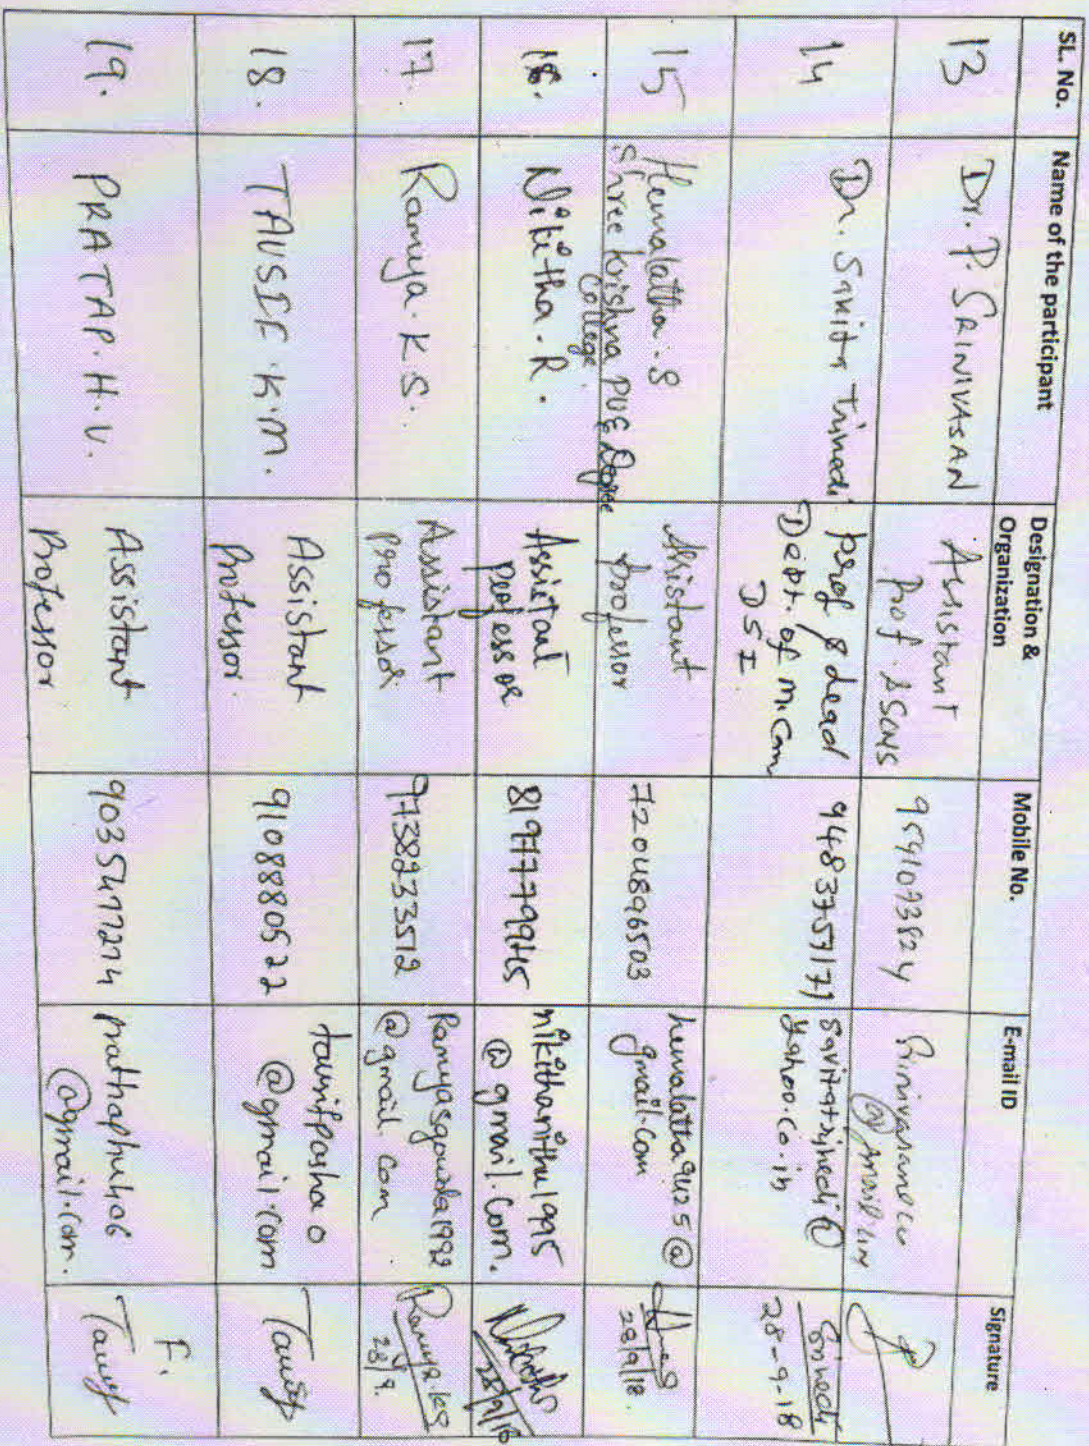 SL. No. Name of the participant Designation & Organization Mobile No. E-mail ID Signature
13 Dr. P. SRINIVASAN Assistant Prof. SSCMS 9591093824
14 Dr. Savita Trivedi Prof & Head
Dept. of M.Com
DSI 9483757171 savitatrivedi@
yahoo.co.in 28-9-18
15 Hemalatha.S
Shree Krishna PU & Degree
College Assistant
Professor 7204896503 hemalatha9425@
gmail.com 28/9/18.
16. Nikitha.R. Assistant
Professor 8197779945 nikithanithu1995
@gmail.com. 28/9/18
17. Ramya.K.S. Assistant
Professor 9738233512 Ramyasgowda1992
@gmail.com Ramya.KS
28/9.
18. TAUSIF.K.M. Assistant
Professor. 9108880522 tausifpasha0
@gmail.com Tausif
19. PRATAP.H.V. Assistant
Professor 9035477274 prathaphuh06
@gmail.com. F.
Tausif